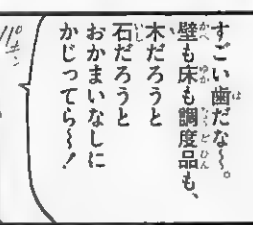 すごい歯だな〜。
壁も床も調度品も、
木だろうと
石だろうと
おかまいなしに
かじってら〜！